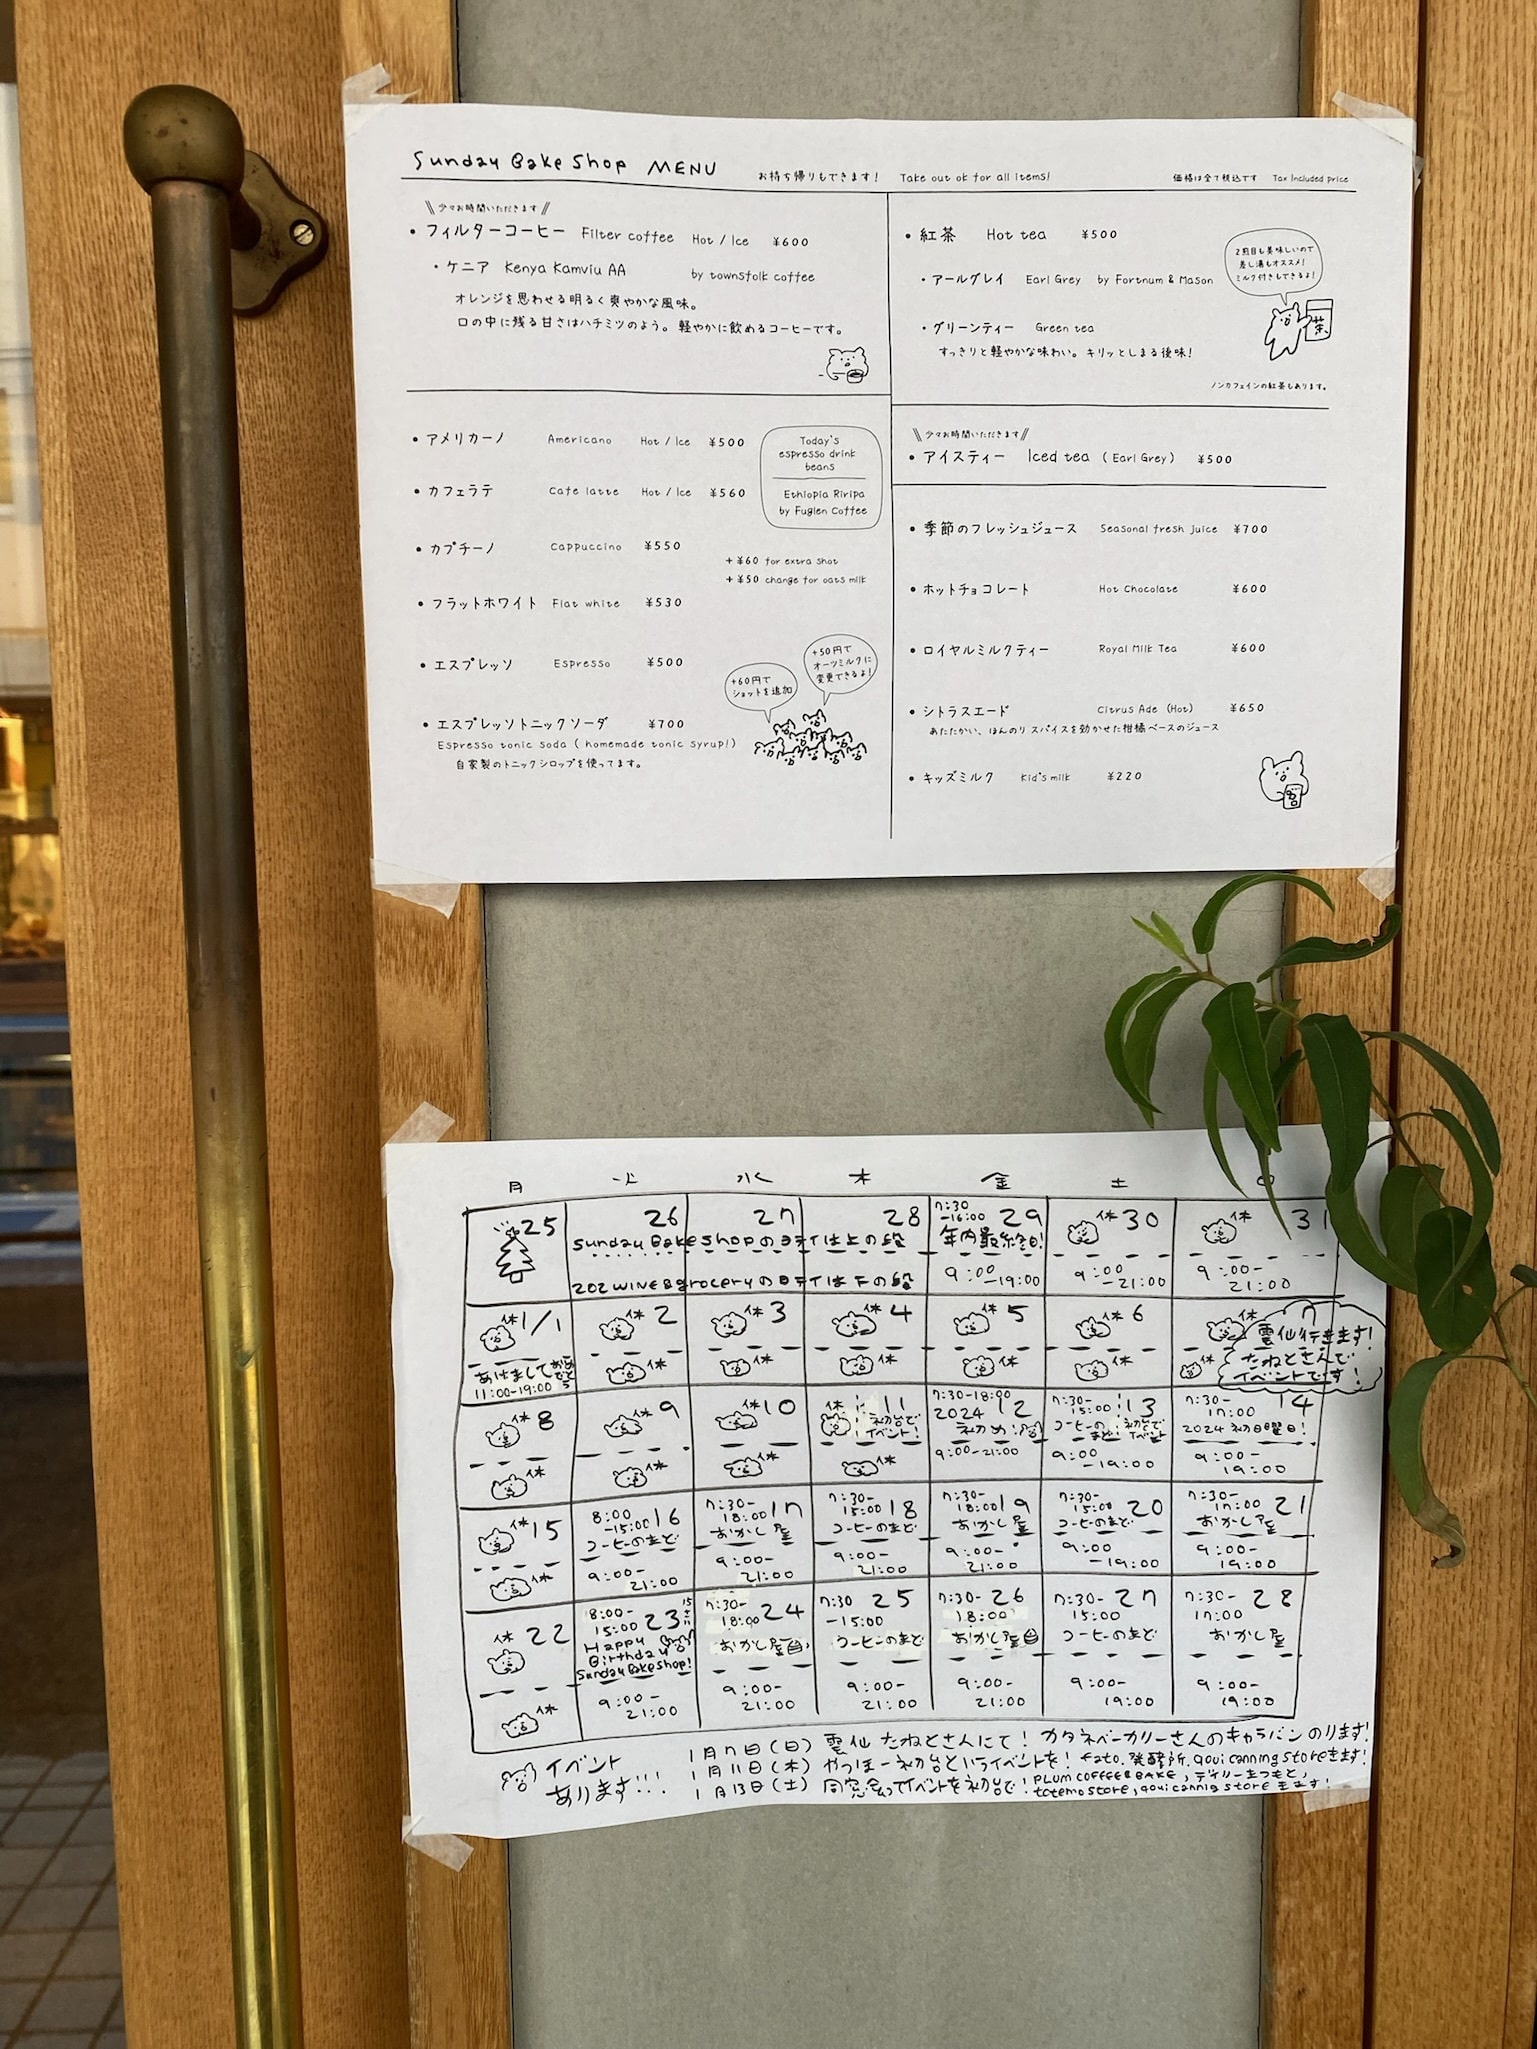 Sunday Bake Shop MENU お持ち帰りもできます! Take out ok for all items! 価格は全て税込です Tax included price
少々お時間いただきます
・フィルターコーヒー Filter coffee Hot / Ice ¥600
・ケニア Kenya Kamviu AA by townsfolk coffee
オレンジを思わせる明るく爽やかな風味。
口の中に残る甘さはハチミツのよう。軽やかに飲めるコーヒーです。
・アメリカーノ Americano Hot / Ice ¥500
・カフェラテ Cafe latte Hot / Ice ¥560
・カプチーノ Cappuccino ¥550
・フラットホワイト Flat white ¥530
・エスプレッソ Espresso ¥500
・エスプレッソトニックソーダ ¥700
Espresso tonic soda ( homemade tonic syrup!)
自家製のトニックシロップを使ってます。
Today's
espresso drink
beans
Ethiopia Riripa
by Fuglen Coffee
+ ¥60 for extra shot
+ ¥50 change for oats milk
+60円で
ショットを追加
+50円で
オーツミルクに
変更できるよ!
・紅茶 Hot tea ¥500
・アールグレイ Earl Grey by Fortnum & Mason
・グリーンティー Green tea
すっきりと軽やかな味わい。キリッとしまる後味!
2煎目も美味しいので
差し湯もオススメ!
ミルク付きもできるよ!
茶
ノンカフェインの紅茶もあります。
少々お時間いただきます
・アイスティー Iced tea ( Earl Grey ) ¥500
・季節のフレッシュジュース Seasonal fresh juice ¥700
・ホットチョコレート Hot Chocolate ¥600
・ロイヤルミルクティー Royal Milk Tea ¥600
・シトラスエード Citrus Ade (Hot) ¥650
あたたかい、ほんのりスパイスを効かせた柑橘ベースのジュース
・キッズミルク Kid's milk ¥220
月 火 水 木 金 土
25
26 27 28
Sunday Bake shopの日テイは上の段
202 WINE&groceryの日テイは下の段
7:30
-16:00 29
年内最終日!
9:00
-19:00
休 30
9:00
-21:00
休 31
9:00-
21:00
休 1/1
あけまして おめでとう
11:00-19:00
休 2
休
休 3
休
休 4
休
休 5
休
休 6
休
休 7
休
雲仙行きます!
たねとさんで
イベントです!
休 8
休
休 9
休
休 10
休
休 11
初台で
イベント!
休
7:30-18:00
2024 12
初め!
9:00-21:00
7:30-
15:00 13
コーヒーのまど! 初台でイベント
9:00
-19:00
7:30-
17:00 14
2024 初日曜日!
9:00-
19:00
休 15
休
8:00
-15:00 16
コーヒーのまど
9:00-
21:00
7:30-
18:00 17
おかし屋
9:00-
21:00
7:30-
15:00 18
コーヒーのまど
9:00-
21:00
7:30-
18:00 19
おかし屋
9:00-
21:00
7:30-
15:00 20
コーヒーのまど
9:00
-19:00
7:30-
17:00 21
おかし屋
9:00-
19:00
休 22
休
8:00-
15:00 23
Happy
Birthday
Sunday Bake shop!
9:00-
21:00
7:30-
18:00 24
おかし屋
9:00-
21:00
7:30 25
-15:00
コーヒーのまど
9:00-
21:00
7:30- 26
18:00
おかし屋
9:00-
21:00
7:30- 27
15:00
コーヒーのまど
9:00-
19:00
7:30- 28
17:00
おかし屋
9:00-
19:00
イベント
あります!!!
1月7日(日) 雲仙 たねとさんにて! カタネベーカリーさんのキャラバンのります!
1月11日(木) やっほー初台というイベントを! fato. 発酵所. qoui canning storeきます!
1月13日(土) 同窓会ってイベントを初台で! PLUM COFFEE&BAKE, デイリーまつもと,
totemo store, qoui cannig store きます!